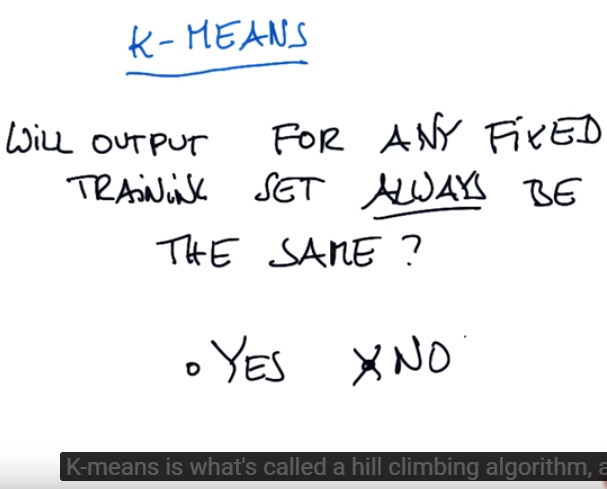 K-MEANS
WILL OUTPUT FOR ANY FIXED
TRAINING SET ALWAYS BE
THE SAME ?
YES X NO
K-means is what's called a hill climbing algorithm, a